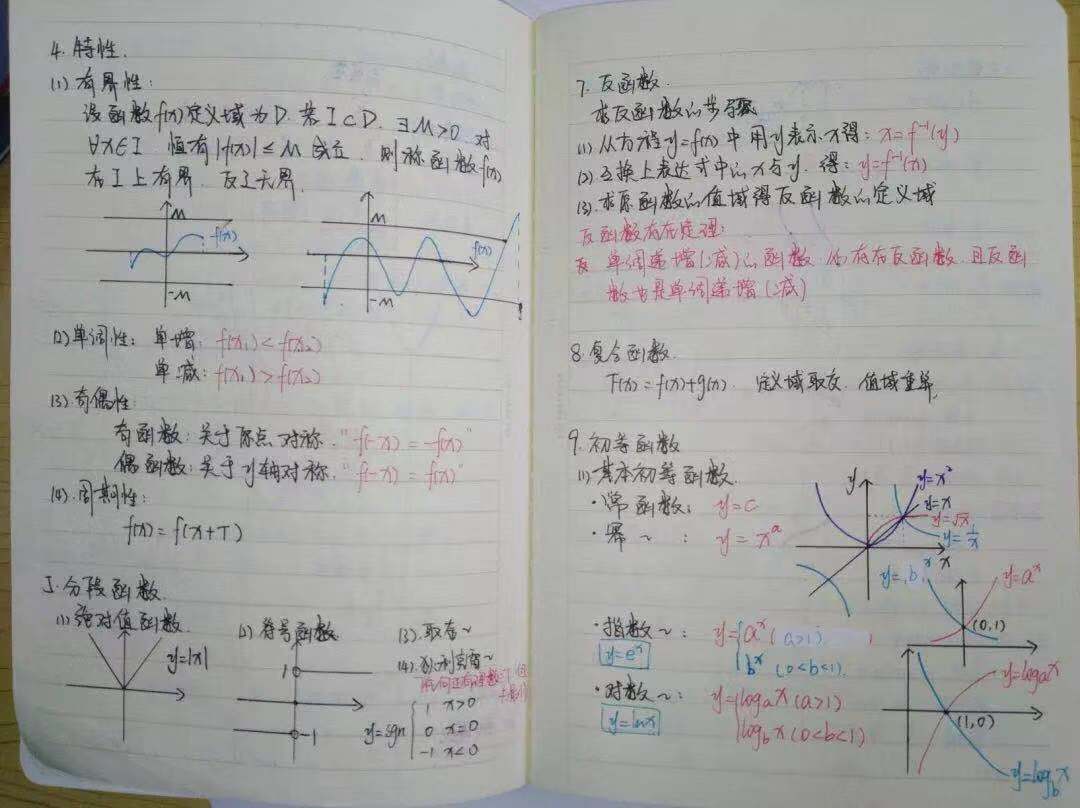 4. 特性.
(1) 有界性:
设函数f(x)定义域为D. 若I⊂D. ∃M>0. 对
∀x∈I 恒有|f(x)|≤M成立, 则称函数f(x)
在I上有界. 反之无界.
M
f(x)
-M
M
f(x)
-M
(2) 单调性: 单增: f(x₁)<f(x₂)
单减: f(x₁)>f(x₂)
(3) 奇偶性:
奇函数: 关于原点对称. "f(-x) = -f(x)"
偶函数: 关于y轴对称. "f(-x) = f(x)"
(4). 周期性:
f(x) = f(x+T)
5. 分段函数.
(1) 绝对值函数.
y=|x|
(2) 符号函数
1
-1
(3). 取整~
(4). 狄利克雷~
y=sgn
1 x>0
0 x=0
-1 x<0
7. 反函数.
求反函数的步骤
(1) 从方程y=f(x)中用y表示x得: x=f⁻¹(y)
(2) 互换上表达式中的x与y. 得: y=f⁻¹(x)
(3). 求原函数的值域得反函数的定义域
反函数存在定理:
单调递增(减)的函数 存在反函数. 且反函
数也是单调递增(减)
8. 复合函数.
F(x) = f(x)+g(x). 定义域取交. 值域重算.
9. 初等函数
(1) 基本初等函数.
·常函数: y=c
·幂~: y=xᵃ
y
y=x²
y=x
y=√x
y=1/x
x
·指数~: y= aˣ (a>1)
bˣ (0<b<1).
y=eˣ
y=bˣ
y=aˣ
(0,1)
·对数~: y= logₐx (a>1)
log_bx (0<b<1)
y=lnx
y=logₐx
(1,0)
y=log_bx